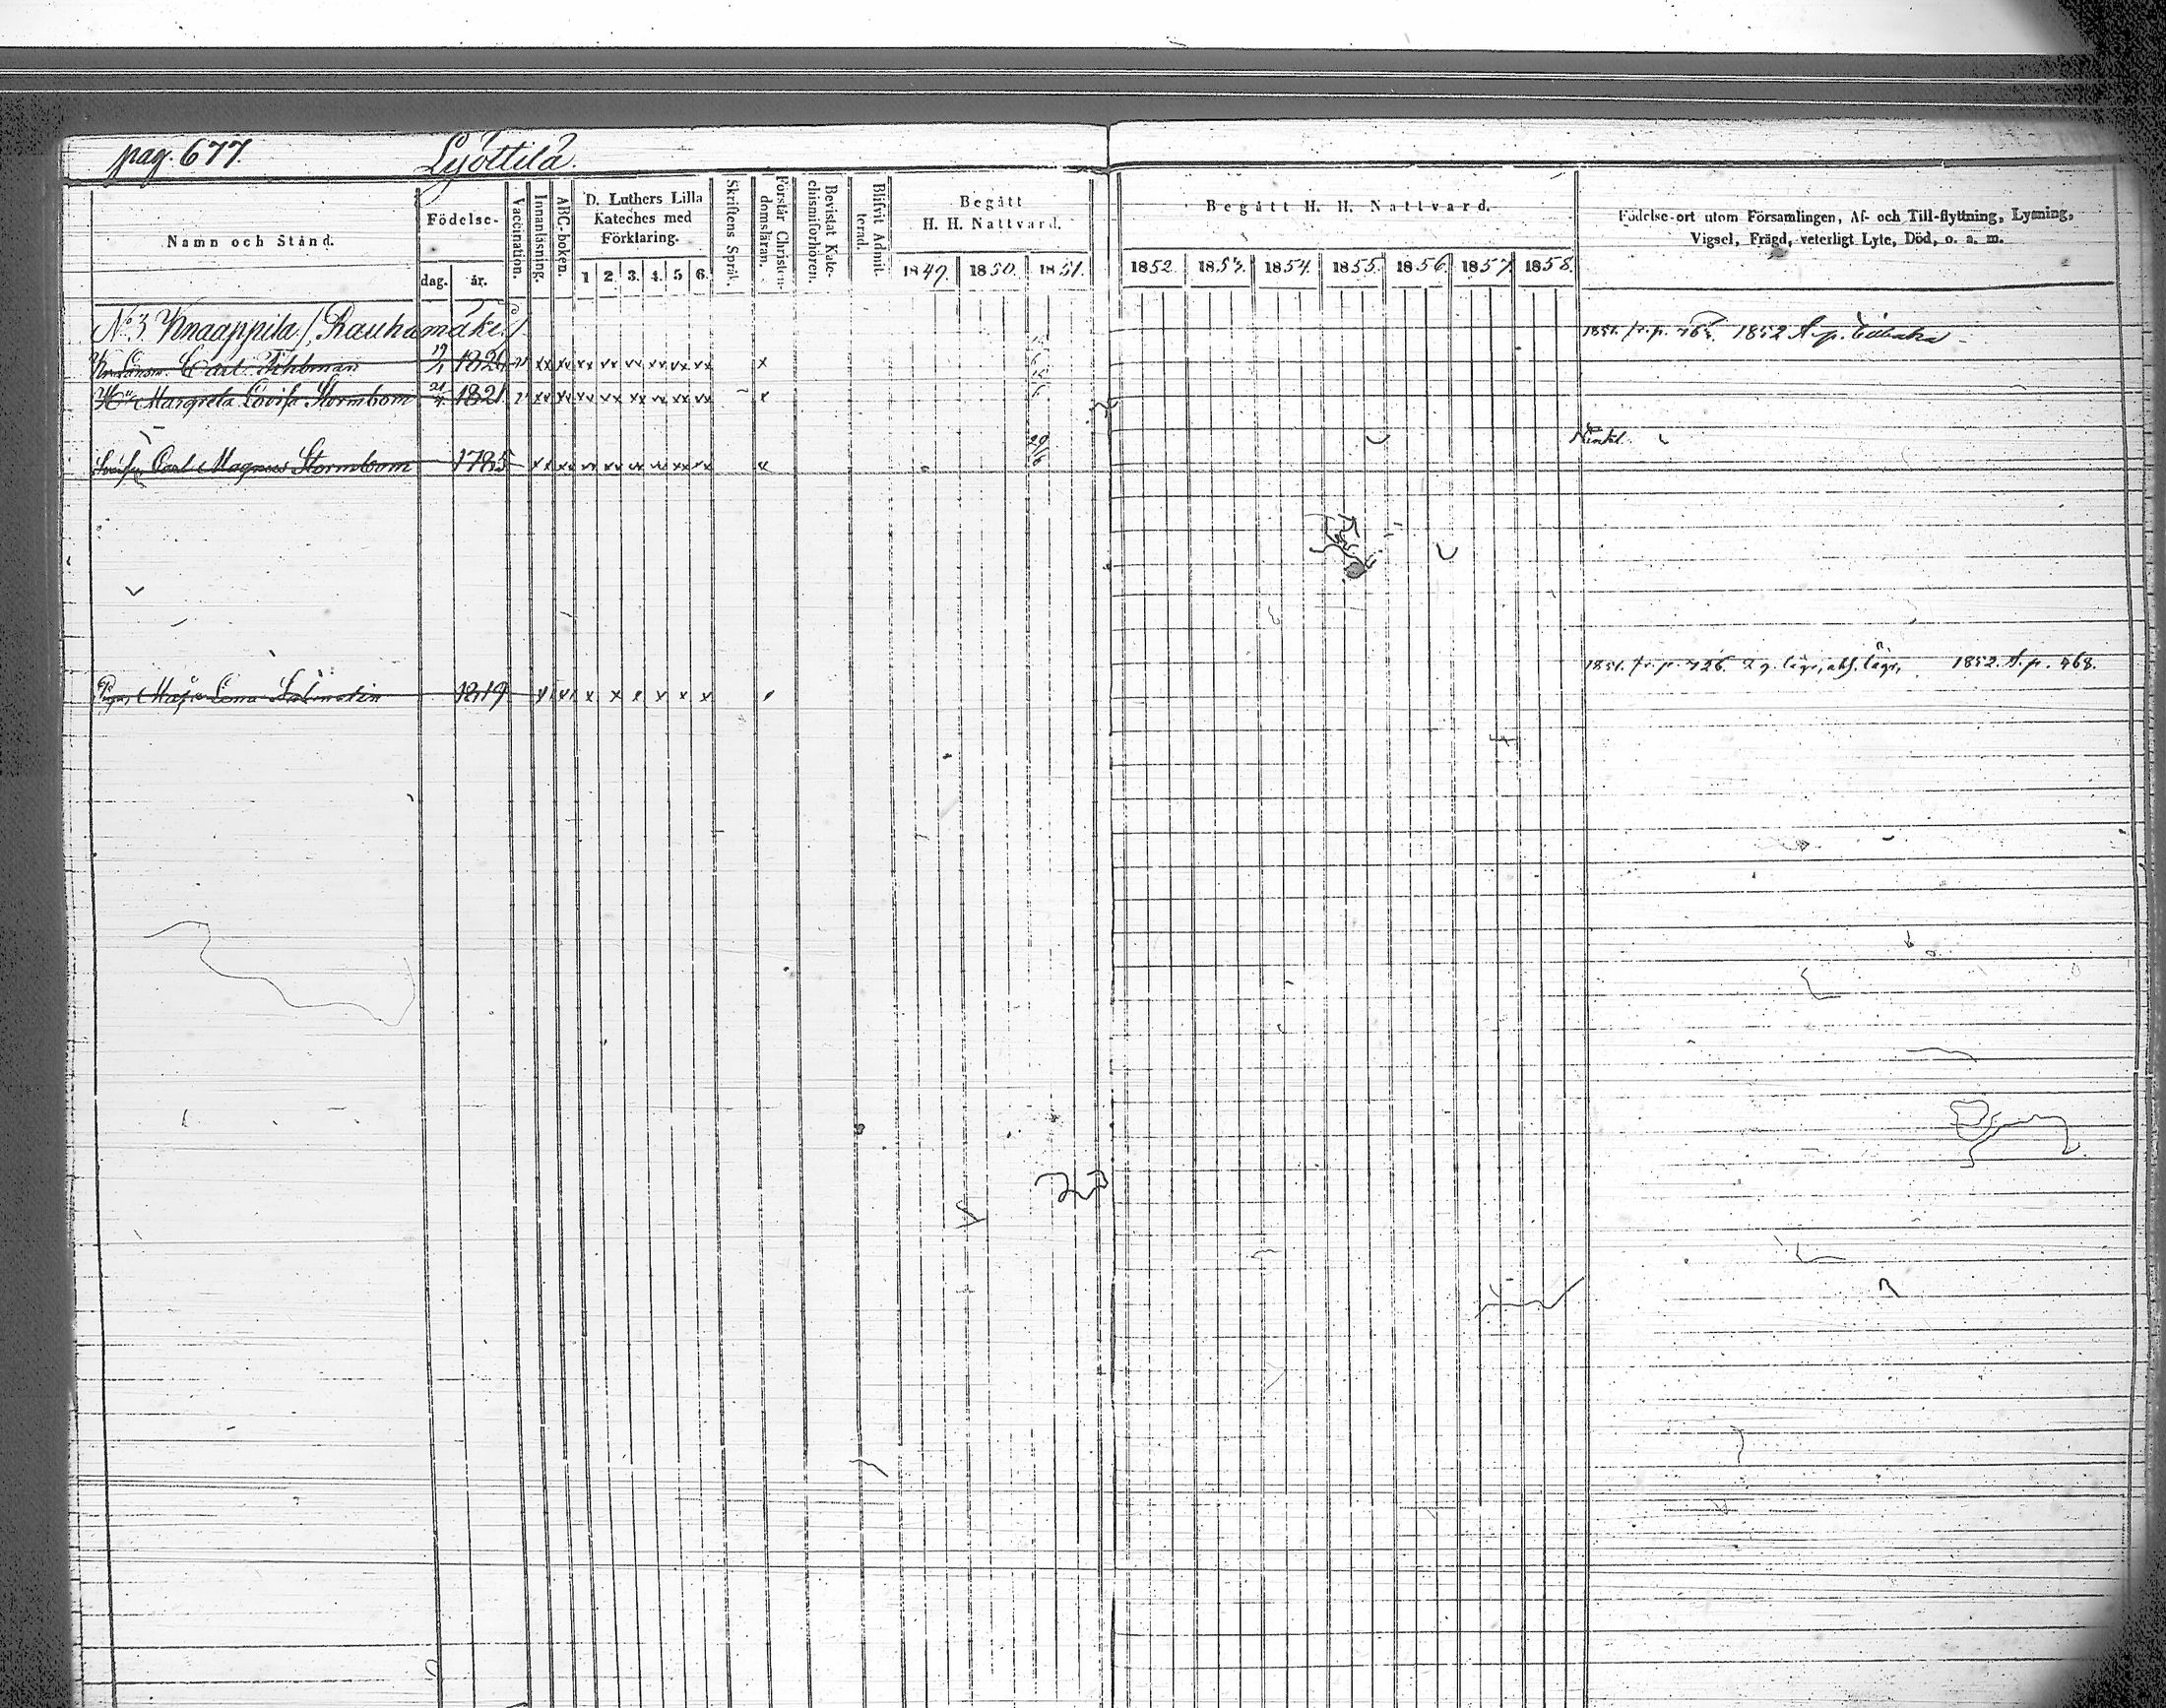 pag. 677. Lyöttilä.
Namn och Stånd.
Födelse-
dag. år.
Vaccination.
Innanläsning.
ABC-boken.
D. Luthers Lilla
Kateches med
Förklaring.
1 2 3. 4. 5 6.
Skriftens Språk.
Förstår Christen-
domsläran.
Bevistat Kate-
chismiförhören.
Blifvit Admit-
terad.
Begått
H. H. Nattvard.
1849. 1850. 1851.
Begått H. H. Nattvard.
1852. 1853. 1854. 1855. 1856. 1857 1858.
Födelse-ort utom Församlingen, Af- och Till-flyttning, Lysning,
Vigsel, Frägd, veterligt Lyte, Död, o. a. m.
No 3 Knaappila / Rauhamäki /
1851. fr. p. 1852 t. p.
Carl 1820 v xx xx xx xx xx xx xx xx x
Hu Margreta Lovisa Stormbom 1821 v xx xx xx xx xx xx xx xx x
Enkl.
Carl Magnus Stormbom 1785 xx xx xx xx xx xx xx xx
Pig. Maja Lena 1819 x x x x x x x
1851. fr. p. 726. 1852. t. p. 468.